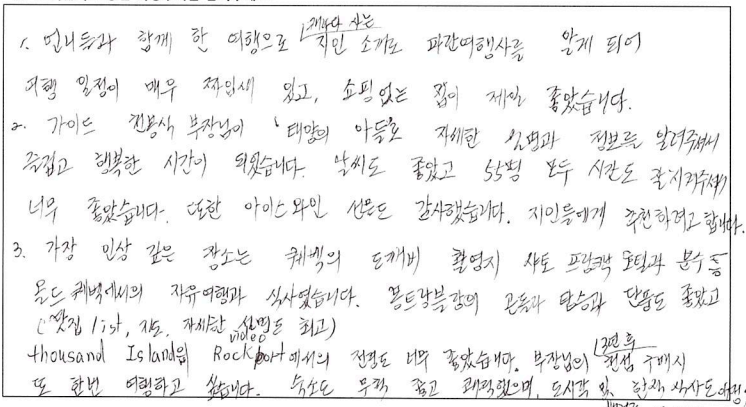 캐나다 사는
1. 언니들과 함께 한 여행으로 지인 소개로 파란여행사를 알게 되어
여행 일정이 매우 짜임새 있고, 쇼핑없는 점이 제일 좋았습니다.
2. 가이드 전용식 부장님이 '태양의 아들'로 자세한 설명과 정보를 알려주셔서
즐겁고 행복한 시간이 되었습니다. 날씨도 좋았고 55명 모두 시간도 잘 지켜주셔서
너무 좋았습니다. 또한 아이스와인 선물도 감사했습니다. 지인들에게 추천하려고 합니다.
3. 가장 인상 깊은 장소는 퀘벡의 도깨비 촬영지 샤토 프랑택 호텔과 분수 등
올드퀘벡에서의 자유여행과 식사였습니다. 몽트랑블랑의 곤돌라 탑승과 단풍도 좋았고
(맛집 list, 지도, 자세한 설명도 최고)
video
thousand Island의 Rockport에서의 전경도 너무 좋았습니다. 부장님의 컨셉 구매시
3년 후
또 한번 여행하고 싶습니다. 숙소도 무척 좋고 쾌적했으며, 도시락 및 한식 식사도